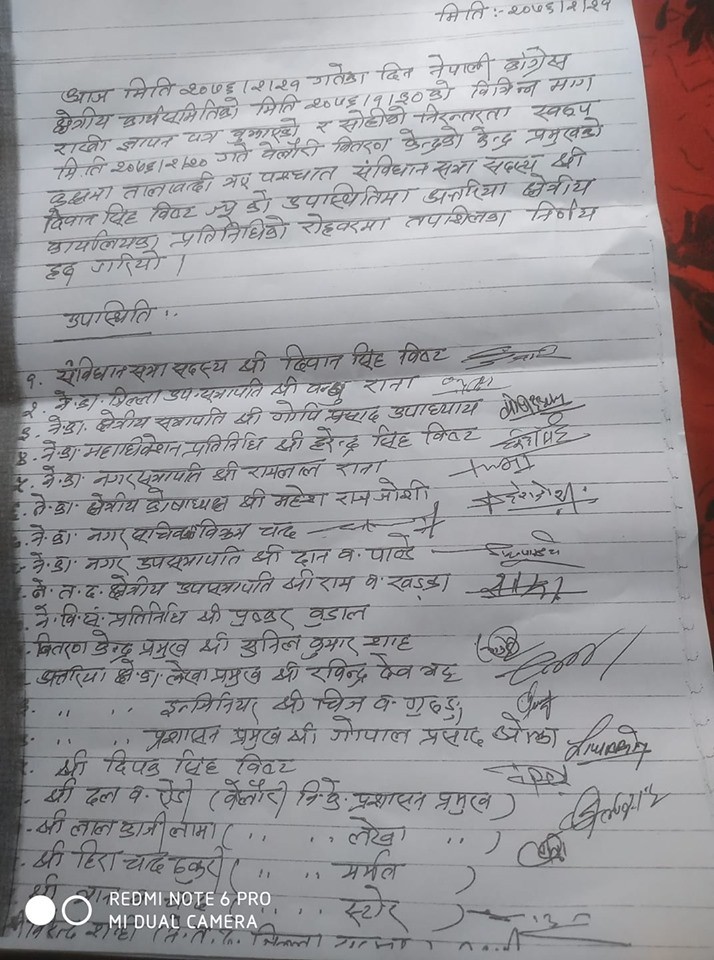 मिति :- २०७६/२/२१
आज मिति २०७६/२/२१ गतेका दिन नेपाली कांग्रेस
क्षेत्रीय कार्यसमितिको मिति २०७६/१/३०को विभिन्न माग
राखी ज्ञापन पत्र बुझाएको र सोहीको निरन्तरता स्वरुप
मिति २०७६/२/२० गते वेलौरी वितरण केन्द्रको केन्द्र प्रमुखको
कक्षमा तालाबन्दी भए पश्चात संविधान सभा सदस्य श्री
दिवान सिंह विष्ट ज्यू को उपस्थितिमा अत्तरिया क्षेत्रीय
कार्यालयका प्रतिनिधिको रोहवरमा तपाशिलका निर्णय
हरु गरियो ।
उपास्थिति :.
१. संविधान सभा सदस्य श्री दिवान सिंह विष्ट
२. ने.का. जिल्ला उप-सभापति श्री राना
३. ने.का. क्षेत्रीय सभापति श्री गोपि प्रसाद उपाध्याय
४. ने.का महाधिवेशन प्रतिनिधि श्री हरेन्द्र सिंह विष्ट
५. ने.का नगर सभापति श्री रामलाल राना
ने.का क्षेत्रीय कोषाध्यक्ष श्री महेश राज जोशी
ने.का. नगर सचिव विक्रम चन्द
ने.का. नगर उपसभापति श्री दान व. पाण्डे
ने.त.द. क्षेत्रीय उपसभापति श्री राम व. खड्का
ने.वि.सं. प्रतिनिधि श्री पुष्कर वुडाल
वितरण केन्द्र प्रमुख श्री सुनिल कुमार शाह
अत्तरिया क्षे.का. लेखा प्रमुख श्री रविन्द्र देव भट्ट
" " इन्जिनियर श्री व.
" " प्रशासन प्रमुख श्री गोपाल प्रसाद ओझा
श्री दिपक सिंह विष्ट
श्री दल व. ऐडी (वेलौरी वि.के. प्रशासन प्रमुख)
श्री लाल काजी लामा ( " " लेखा " )
श्री हिरा चन्द ठकुरी ( " " मर्मत )
श्री ( " " स्टोर )
REDMI NOTE 6 PRO
MI DUAL CAMERA